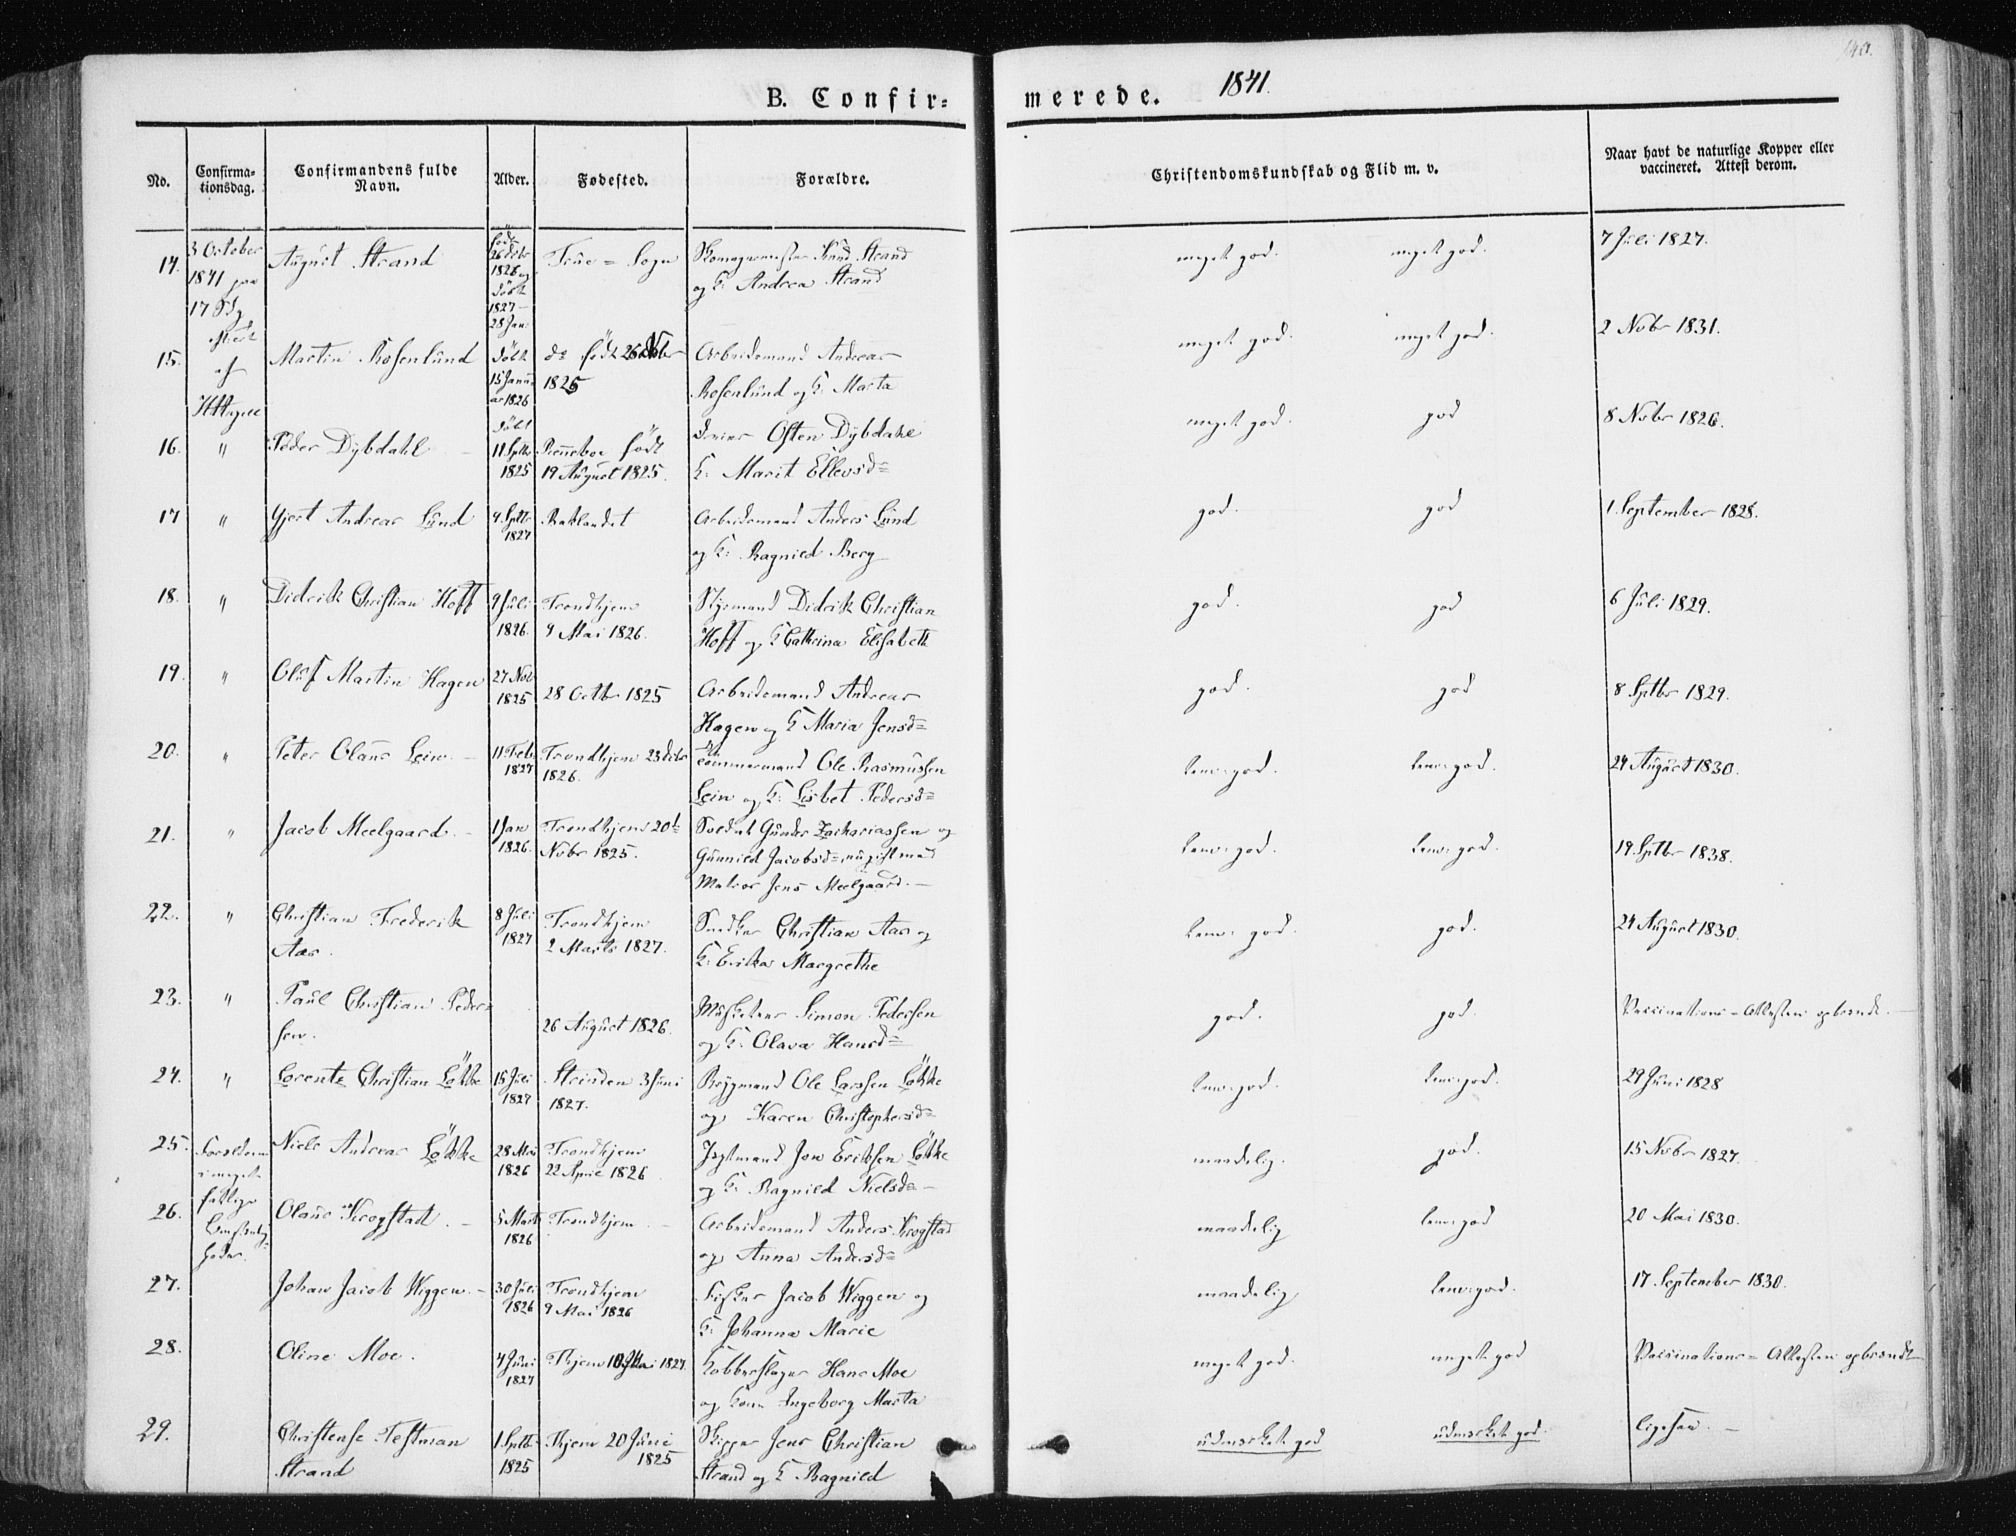 B. Confir= merede. 1841.
No.
Confirma=
tionsdag.
Confirmandens fulde
Navn.
Alder.
Fødested.
Forældre.
Christendomskundskab og Flid m. v.
Naar havt de naturlige Kopper eller
vaccineret. Attest derom.
14. 3 October 1841 August Strand født 1826 og døbt 1827 28 Jan: Frue = Sogn Strand
og K. Andrea Strand meget god. meget god. 7 Juli 1827.
15. Martin Rosenlund døbt 15 Janu ar 1826 født 1825 Arbeidsmand Andreas
Rosenlund og K: Marta meget god. meget god. 2 Nobr 1831.
16. " Peder Dybdahl døbt 11 Sptbr 1825 født
19 August 1825. Osten Dybdahl
K: Marit Ellevsd= meget god. god 8 Nobr 1826.
17 " Gjert Andreas Lund 4 Sptbr 1827 Baklandet Arbeidsmand Anders Lund
og K: Ragnild Berg god. god 1 September 1828.
18. " Didrik Christian Hoff 9 Juli 1826. Trondhjem
4 Mai 1826. Styrmand Didrik Christian
Hoff og K Cathrina Elisabeth god. god 6 Juli 1829.
19. " Oluf Martin Hagen 27 Nov 1825 28 Octbr 1825 Arbeidsmand Andreas
Hagen og K Maria Jensd= god. god 8 Sptbr 1829.
20. " Peter Olaus Lein 11 Feb: 1827 Trondhjem 23 Debr
1826. Tømmermand Ole Rasmussen
Lein og K: Lisbet Pedersd= temm: god. temm: god. 24 August 1830.
21. " Jacob Meelgaard. 1 Jan 1826. Trondhjem 20de
Nobr 1825. Soldat Gunder Zachariassen og
Gunnild Jacobsd= nu gift med
Matros Jens Meelgaard. temm: god. temm: god. 19 Sptbr 1838.
22. " Christian Frederik
Aas. 8 Juli 1827 Trondhjem
2 Marts 1827. Snedker Christian Aas og
K: Erika Margrethe temm: god. god. 24 August 1830.
23. " Paul Christian Peder=
sen. 26 August 1826. Musketeer Simon Pedersen
og K: Olava Hansd= god. god. Vaccinations = Attesten opbrændt.
24. " Lorents Christian Løkke 15 Juli 1827 Strinden 3 Juni
1827. Bygmand Ole Larssen Løkke
og Karen Christophersd= temm: god. temm: god. 29 Juni 1828
25. Forældrene
i meget
fattige Niels Andreas Løkke 28 Mai 1826 Trondhjem
22 April 1826 Jon Eriksen Løkke
og K: Ragnild Nielsd= maadelig. god. 15 Nobr 1827.
26. Olaus Krogstad. 5 Marts 1826 Trondhjem. Arbeidsmand Anders Krogstad
og Anna Andersd= maadelig temm: god 20 Mai 1830.
27. Johan Jacob Wiggen. 30 Juli 1826 Trondhjem
9 Mai 1826 Fisker Jacob Wiggen og
K: Johanna Marie maadelig temm: god. 17 September 1830.
28. Oline Moe. 4 Juni 1827 Thjem Mai 1827. Kobberslager Hans Moe
og Kone Ingeborg Marta meget god. meget god Vaccinations = Attesten opbrændt
29. Christense Testman
Strand 1 Sptb. 1825 Thjem 20 Juni
1825 Skipper Jens Christian
Strand og K Ragnild udmærket god udmærket god. ligesaa.